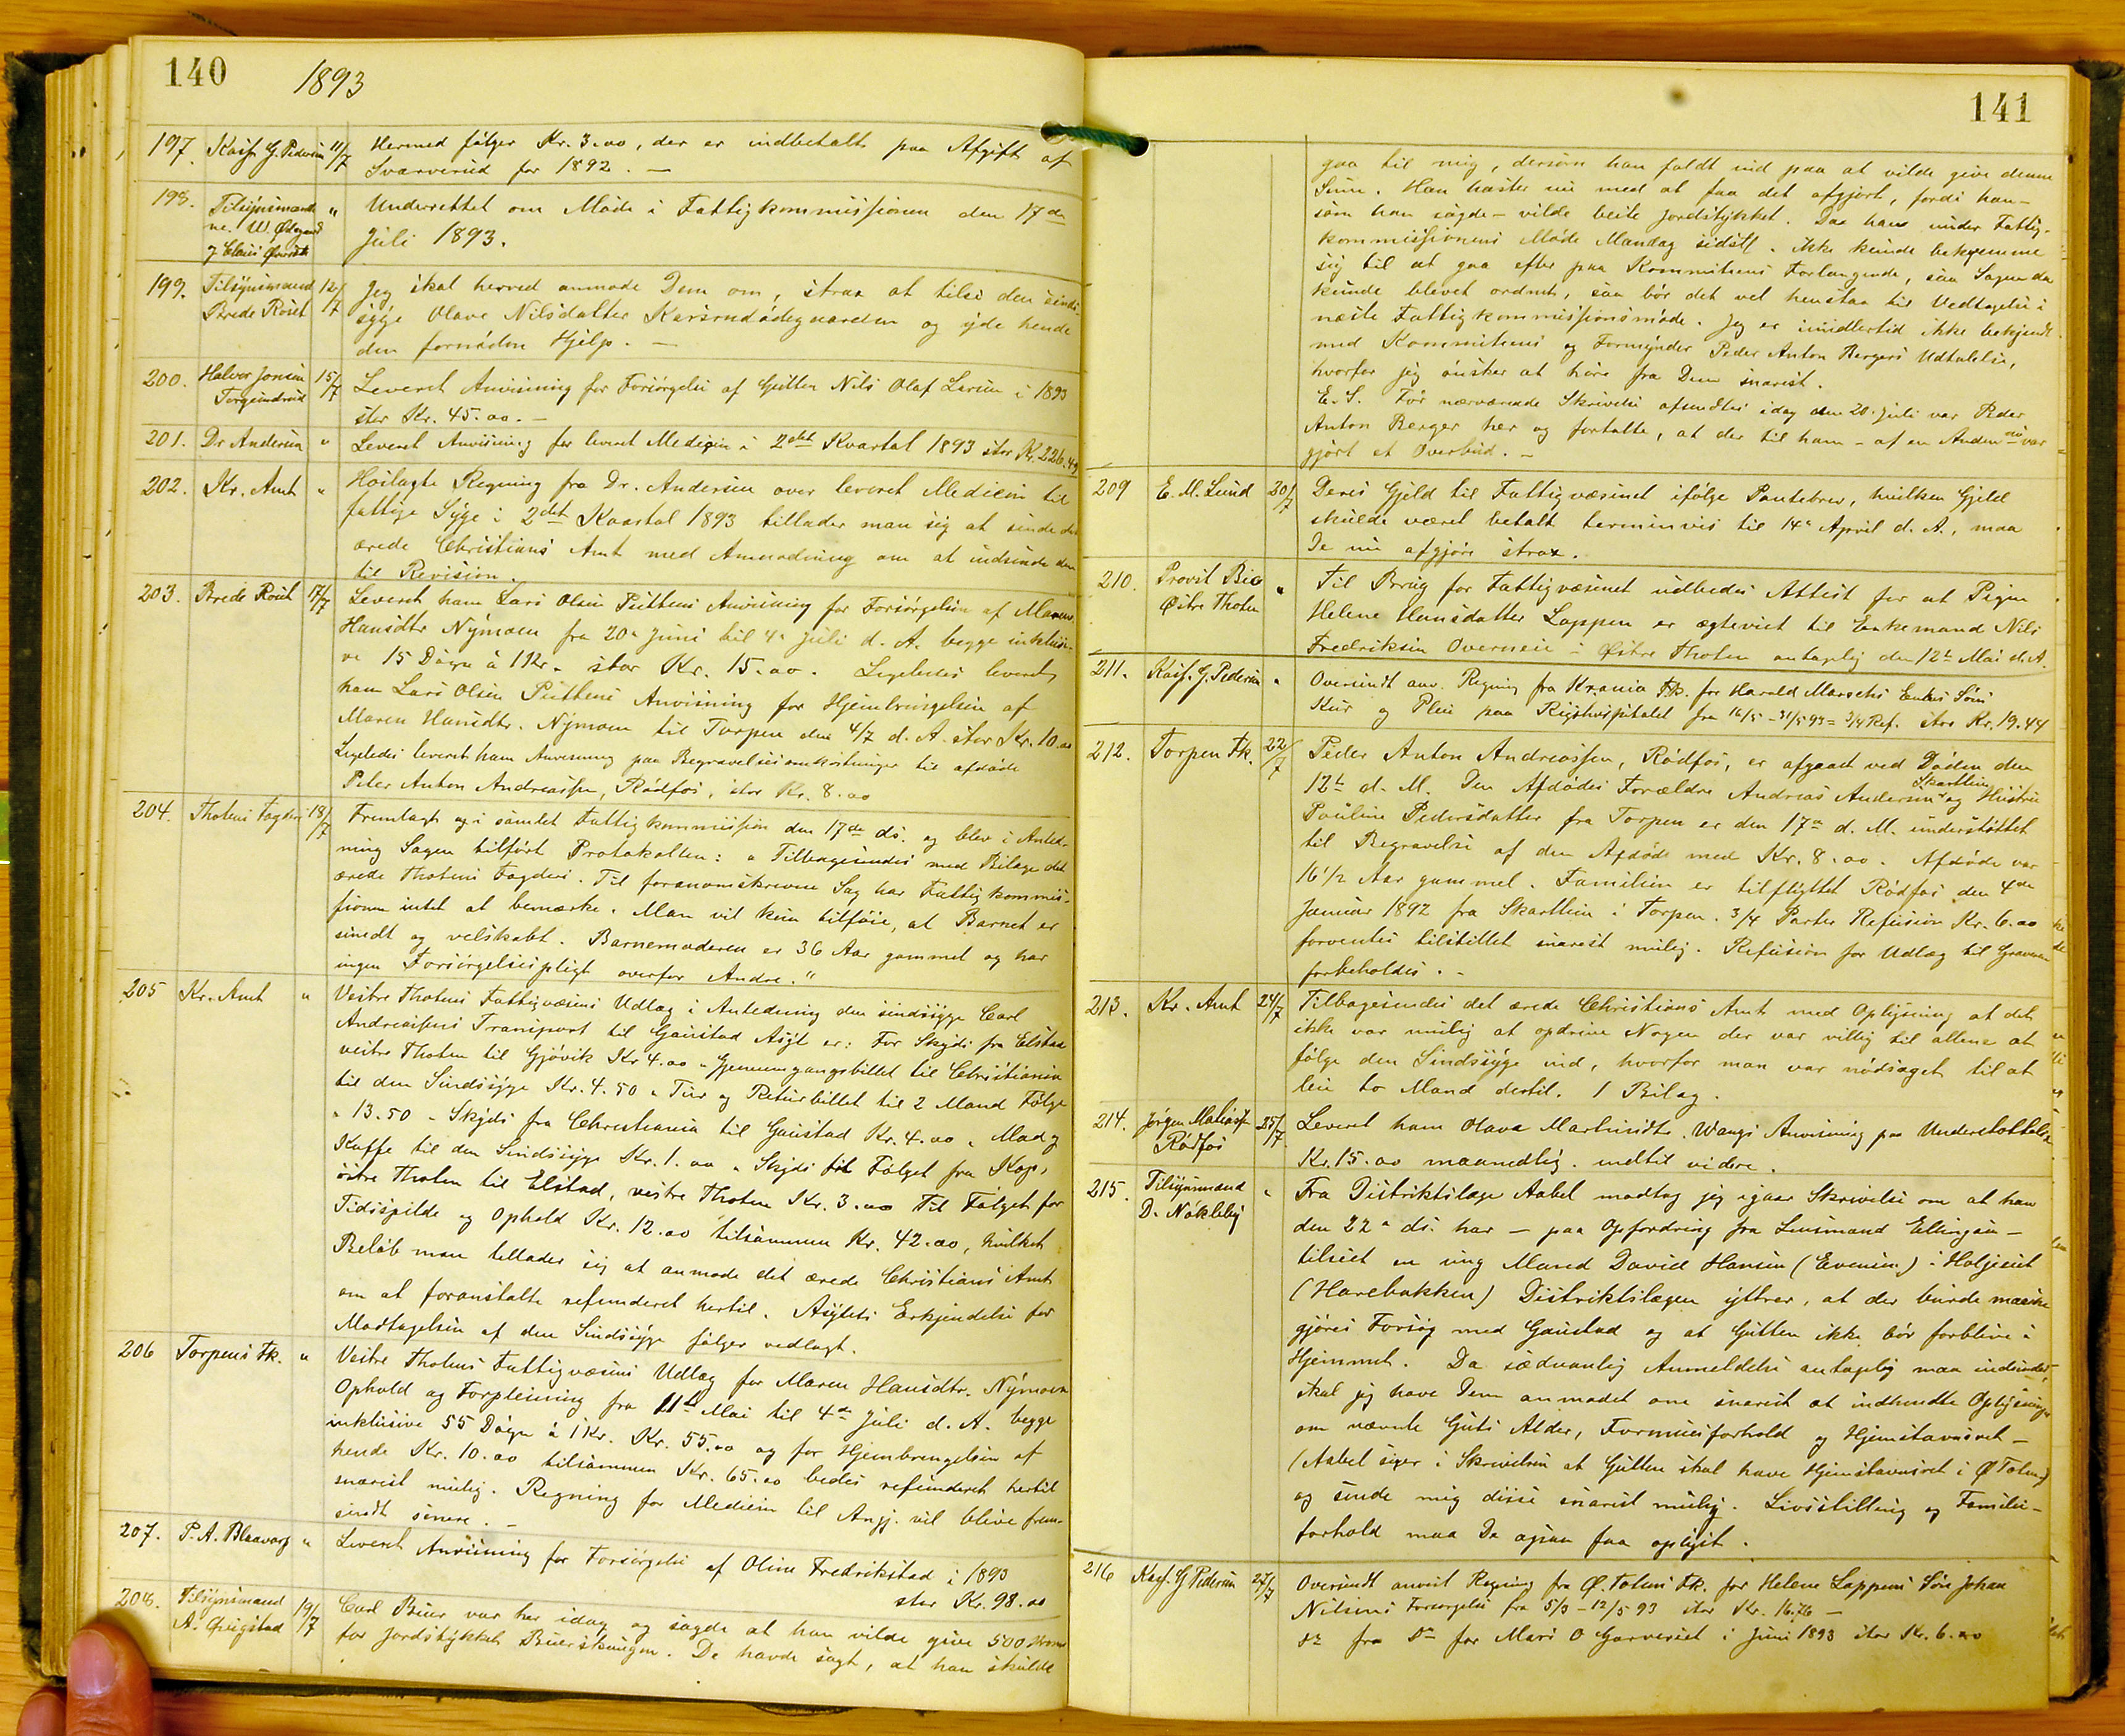 140
1893
197. Kass. G. Pedersen 11/7 Hermed følger Kr. 3.00, der er indbetalt paa Afgift af
Svarverud for 1892. —
198. Tilsynsmænde- " Underrettet om Møde i Fattigkommissionen den 17de
ne. W. Ødegaard Juli 1893.
199. Tilsynsmand 12/7 Jeg skal herved anmode Dem om, strax at tilse den sinds-
Brede Roset syge Olave Nilsdatter og yde hende
den fornødne Hjelp. —
200. Halvor Jonsen 15/7 Leveret Anvisning for Forsørgelse af Gutten Nils Olaf i 1893
stor Kr. 45.00. —
201. Dr Andersen " Leveret Anvisning for leveret Medizin i 2det Kvartal 1893 stor Kr. 226.49
202. Kr. Amt " Hoslagte Regning fra Dr. Andersen over leveret Medicin til
fattige Syge i 2det Kvartal 1893 tillader man sig at sende det
ærede Christians Amt med Anmodning om at indsende den
til Revision.
203. Brede Roset 17/7 Leveret ham Lars Olsen Puttens Anvisning for Forsørgelsen af Maren
Hansdtr Nymoen fra 20de Juni til 4de Juli d. A. begge inklusi-
ve 15 Døgn à 1 Kr. stor Kr. 15.00. Ligeledes leveret
ham Lars Olsen Puttens Anvisning for Hjembringelsen af
Maren Hansdtr. Nymoen til Torpen den 4/7 d. A. stor Kr. 10.00
Ligeledes leveret ham Anvisning paa Begravelsesomkostninger til afdøde
Peter Anton Andreassen, Rødfos, stor Kr. 8.00
204. Thotens Fogderi 18/7 Fremlagt i samlet Fattigkommission den 17de ds. og blev i Anled-
ning Sagen tilført Protokollen: "Tilbagesendes med Bilage det
ærede Thotens Fogderi. Til foranomskrevne Sag har Fattigkommis-
sionen intet at bemærke. Man vil kun tilføie, at Barnet er
sundt og velskabt. Barnemoderen er 36 Aar gammel og har
ingen Forsørgelsespligt overfor Andre."
205 Kr. Amt " Vestre Thotens Fattigvæsens Udlæg i Anledning den sindssyge Carl
Andreassens Transport til Gaustad Asyl er: For Skyds fra Elstad
vestre Thoten til Gjøvik Kr 4.00 " Gjennemgangsbillet til Christiania
til den Sindssyge Kr. 4.50 " Tur og Returbillet til 2 Mand Følge
" 13.50 " Skyds fra Christiania til Gaustad Kr. 4.00 " Mad og
Kaffe til den Sindssyge Kr. 1.00 " Skyds til Følget fra Kap,
østre Thoten til Elstad, vestre Thoten Kr. 3.00 Til Følget for
Tidsspilde og Ophold Kr. 12.00 tilsammen Kr. 42.00, hvilket
Beløb man tillader sig at anmode det ærede Christians Amt
om at foranstalte refunderet hertil. Asylets Erkjendelse for
Modtagelsen af den Sindssyge følger vedlagt.
206 Torpens Fk. " Vestre Thotens Fattigvæsens Udlæg for Maren Hansdtr. Nymoen
Ophold og Forpleining fra 11te Mai til 4de Juli d. A. begge
inklusive 55 Døgn à 1 Kr. Kr. 55.00 og for Hjembringelsen af
hende Kr. 10.00 tilsammen Kr. 65.00 bedes refunderet hertil
snarest mulig. Regning for Medicin til Angj. vil blive frem-
sendt senere. —
207. P. A. Blaavarp " Leveret Anvisning for Forsørgelse af Oline Fredrikstad i 1893
stor Kr. 98.00
208. Tilsynsmand 19/7 Carl Buer var her idag og sagde at han vilde give 500 Kroner
A. Qvigstad for Jordstykket Buerskougen. De havde sagt, at han skulde
141
gaa til mig, dersom han faldt ind paa at vilde give denne
Sum. Han haster nu med at faa det afgjort, fordi han –
som han sagde – vilde beite Jordstykket. Da han under Fattig-
kommissionens Møde Mandag sidstl. ikke kunde bekvemme
sig til at gaa efter paa Kommunens Forlangende, saa Sagen da
kunde blevet ordnet, saa bør det vel henstaa til Vedtagelse i
næste Fattigkommissionsmøde. Jeg er imidlertid ikke bekjendt
med Kommunens og Formynder Peder Anton Bergers Udtalelse,
hvorfor jeg ønsker at høre fra Dem snarest.
E. S. Før nærværende Skrivelse afsendtes idag den 20. Juli var Peder
Anton Berger her og fortalte, at der til ham – af en Anden nu var
gjort et Overbud. –
209 E. M. Lund 20/7 Deres Gjeld til Fattigvæsenet ifølge Pantebrev, hvilken Gjeld
skulde været betalt terminvis til 14de April d. A., maa
De nu afgjøre strax.
210. Provst " Til Brug for Fattigvæsenet udbedes Attest for at Pigen
Østre Thoten Helene Hansdatter Lappen er ægteviet til Enkemand Nils
Fredriksen Overneie i Østre Thoten antagelig den 12te Mai d. A.
211. Kass. G. Pedersen " Oversendt anv. Regning fra Krania Fk. for Harald Enkes Søns
Kur og Pleie paa Rigshospitalet fra 16/5 – 31/5 93 = 3/4 Ref. stor Kr. 19.44
212. Torpen Fk. 22/7 Peder Anton Andreassen, Rødfos, er afgaaet ved Døden den
12te d. M. Den Afdødes Forældre Andreas Andersen Skartlien og Hustru
Pauline Pedersdatter fra Torpen er den 17de d. M. understøttet
til Begravelse af den Afdøde med Kr. 8.00. Afdøde var
16 1/2 Aar gammel. Familien er tilflyttet Rødfos den 4de
Januar 1892 fra Skartlien i Torpen. 3/4 Parter Refusion Kr. 6.00
forventes tilstillet snarest mulig. Refusion for Udlæg til Graven
forbeholdes. –
213. Kr. Amt 24/7 Tilbagesendes det ærede Christians Amt med Oplysning at det
ikke var mulig at opdrive Nogen der var villig til allene at
følge den Sindssyge ind, hvorfor man var nødsaget til at
leie to Mand dertil. 1 Bilag.
214. Jørgen 25/7 Leveret ham Olava Martinsdtr. Wangs Anvisning paa Understøttelse
Rødfos Kr. 15.00 maanedlig indtil videre.
215. Tilsynsmand " Fra Distriktslæge Aabel modtog jeg igaar Skrivelse om at han
D. Nøkleby den 22de ds. har – paa Opfordring fra Lensmand Ellingsen –
tilseet en ung Mand David Hansen (Evensen) i
(Harebakken) Distriktslægen yttrer, at der burde maaske
gjøres Forsøg med Gaustad og at Gutten ikke bør forblive i
Hjemmet. Da sædvanlig Anmeldelse antagelig maa indsendes,
skal jeg have Dem anmodet om snarest at indhendte Oplysninger
om nævnte Guts Alder, Formuesforhold og Hjemstavnsret –
(Aabel siger i Skrivelsen at Gutten skal have Hjemstavnsret i Ø Toten)
og sende mig disse snarest mulig. Livsstilling og Familie-
forhold maa De ogsaa faa oplyst.
216 Kass. G Pedersen 27/7 Oversendt anvist Regning fra Ø. Totens Fk. for Helene Lappens Søn Johan
Nilsens Forsørgelse fra 5/3 – 12/5 93 stor Kr. 16.76 –
do fra do for Mari O Garveriet i Juni 1893 stor Kr. 6.00